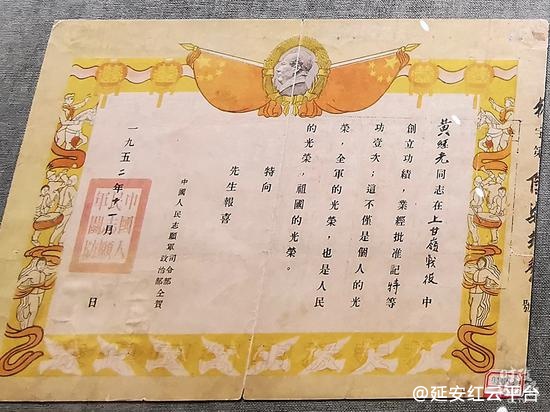 黄继光同志在上甘嶺戰役中
創立功績，業經批准記特等
功壹次；這不僅是個人的光
榮，全軍的光榮，也是人民
的光榮，祖國的光榮。
特向
先生報喜
中國人民志願軍司令部
政治部仝賀
一九五二年 月 日
號
@延安红云平台